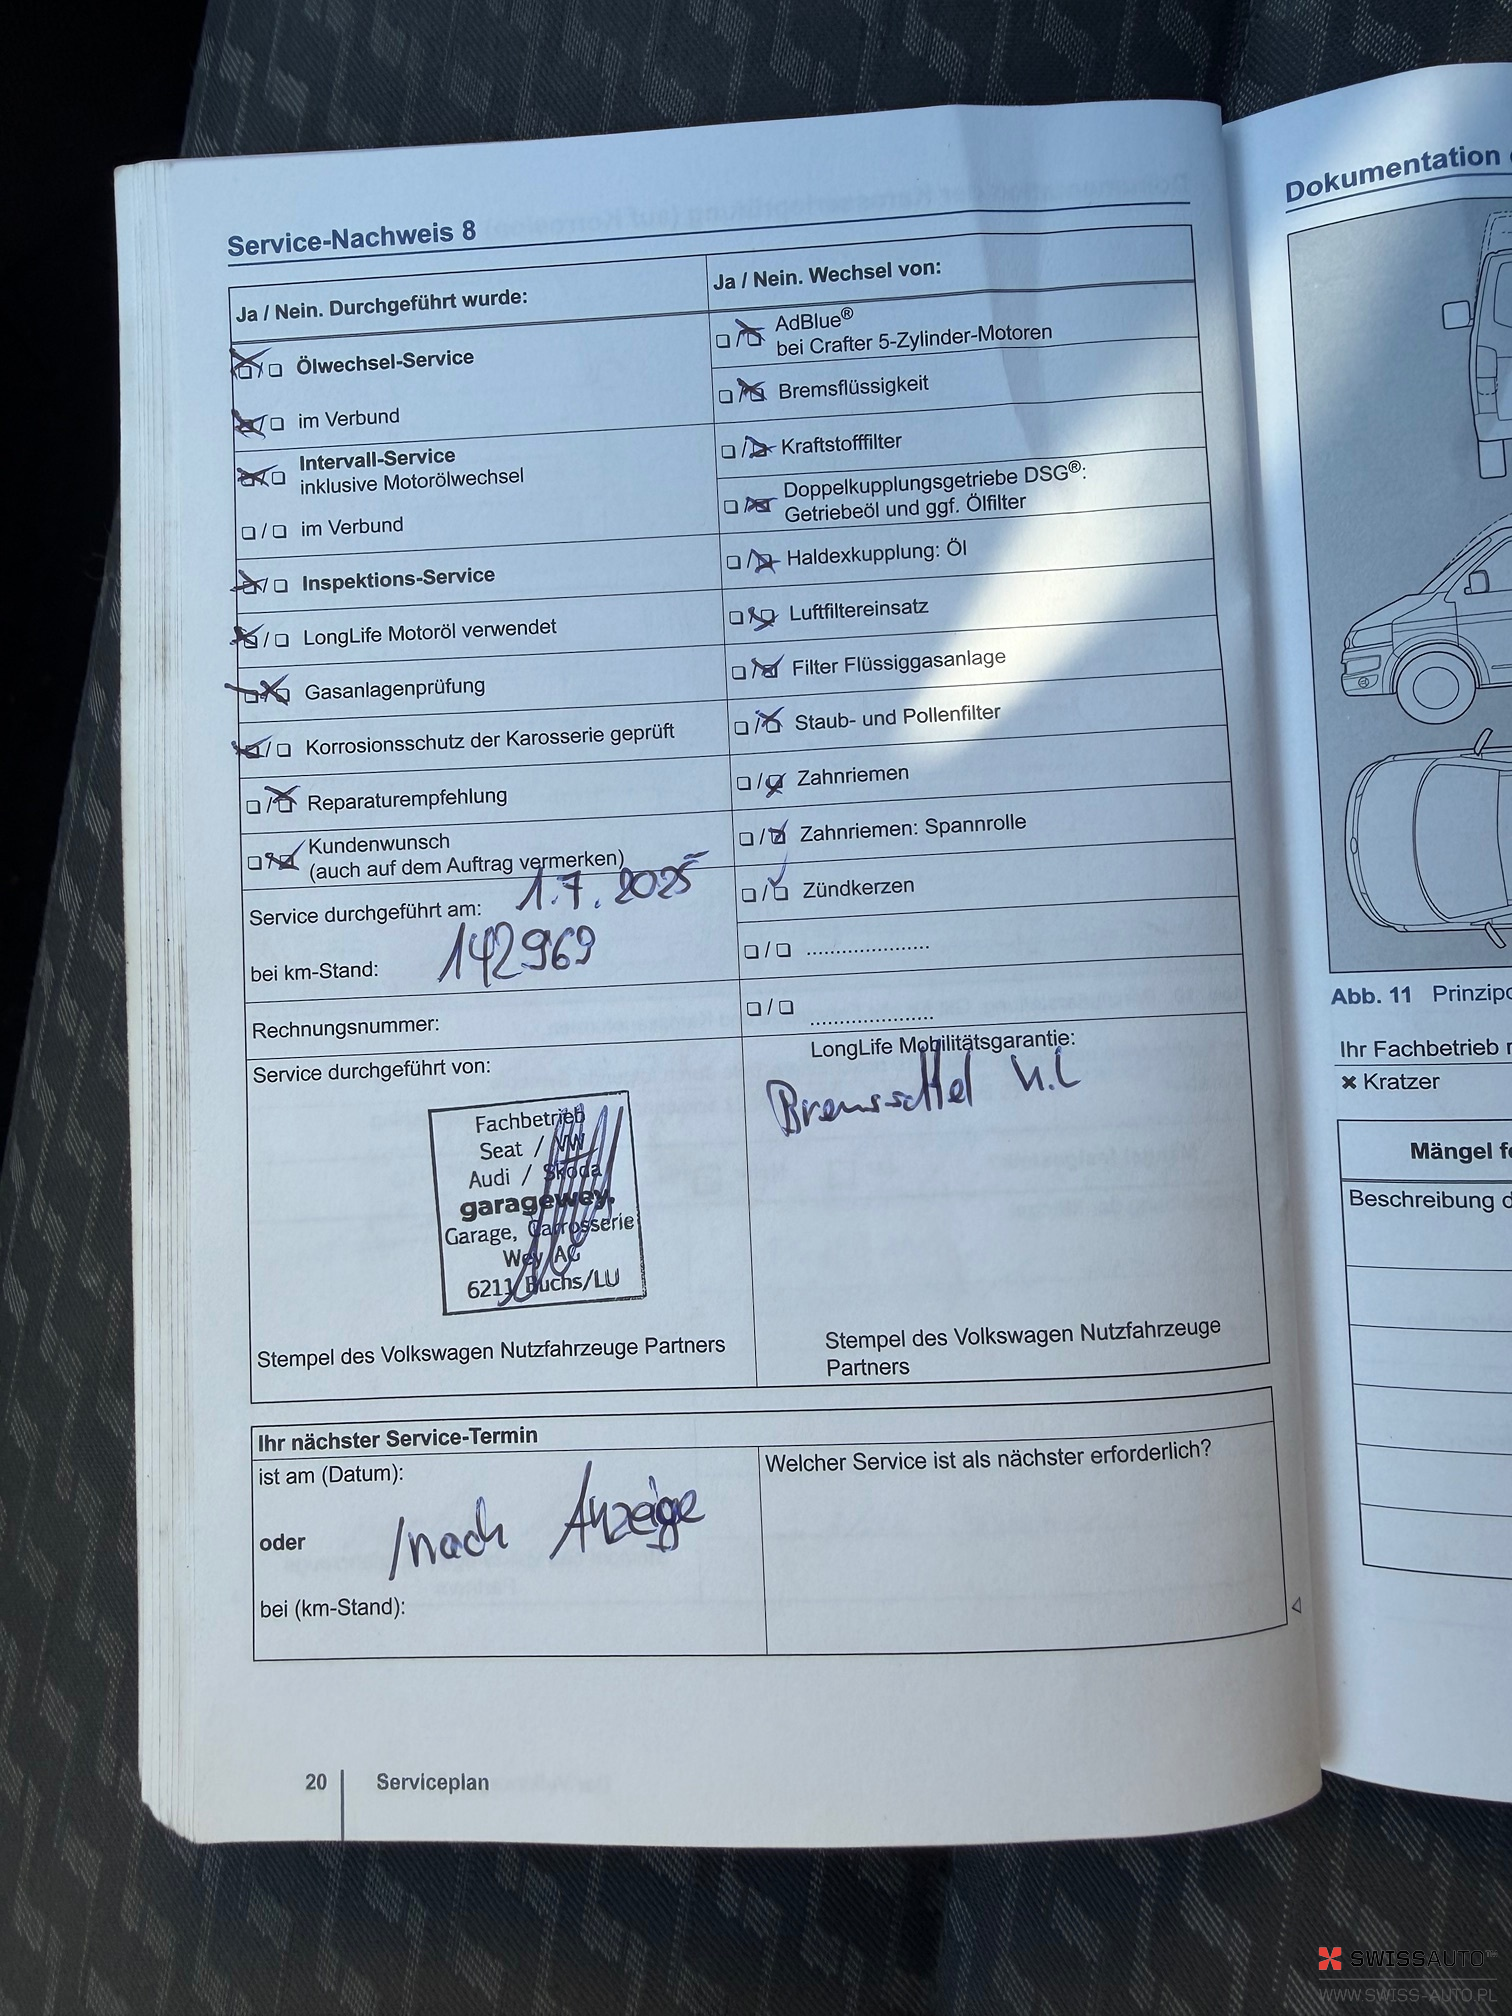 Service-Nachweis 8
Ja / Nein. Durchgeführt wurde:
Ölwechsel-Service
im Verbund
Intervall-Service
inklusive Motorölwechsel
im Verbund
Inspektions-Service
LongLife Motoröl verwendet
Gasanlagenprüfung
Korrosionsschutz der Karosserie geprüft
Reparaturempfehlung
Kundenwunsch
(auch auf dem Auftrag vermerken)
Service durchgeführt am: 1.7.2025
bei km-Stand: 142969
Rechnungsnummer:
Service durchgeführt von:
Fachbetrieb
Seat / VW
Audi / Skoda
garagewey.
Garage, Carrosserie
Wey AG
6211 Buchs/LU
Stempel des Volkswagen Nutzfahrzeuge Partners
Ja / Nein. Wechsel von:
AdBlue®
bei Crafter 5-Zylinder-Motoren
Bremsflüssigkeit
Kraftstofffilter
Doppelkupplungsgetriebe DSG®:
Getriebeöl und ggf. Ölfilter
Haldexkupplung: Öl
Luftfiltereinsatz
Filter Flüssiggasanlage
Staub- und Pollenfilter
Zahnriemen
Zahnriemen: Spannrolle
Zündkerzen
LongLife Mobilitätsgarantie:
Stempel des Volkswagen Nutzfahrzeuge
Partners
Ihr nächster Service-Termin
ist am (Datum):
oder
/nach Anzeige
bei (km-Stand):
Welcher Service ist als nächster erforderlich?
20 Serviceplan
Dokumentation
Abb. 11
Ihr Fachbetrieb
× Kratzer
Mängel
Beschreibung
SWISSAUTO
WWW.SWISS-AUTO.PL